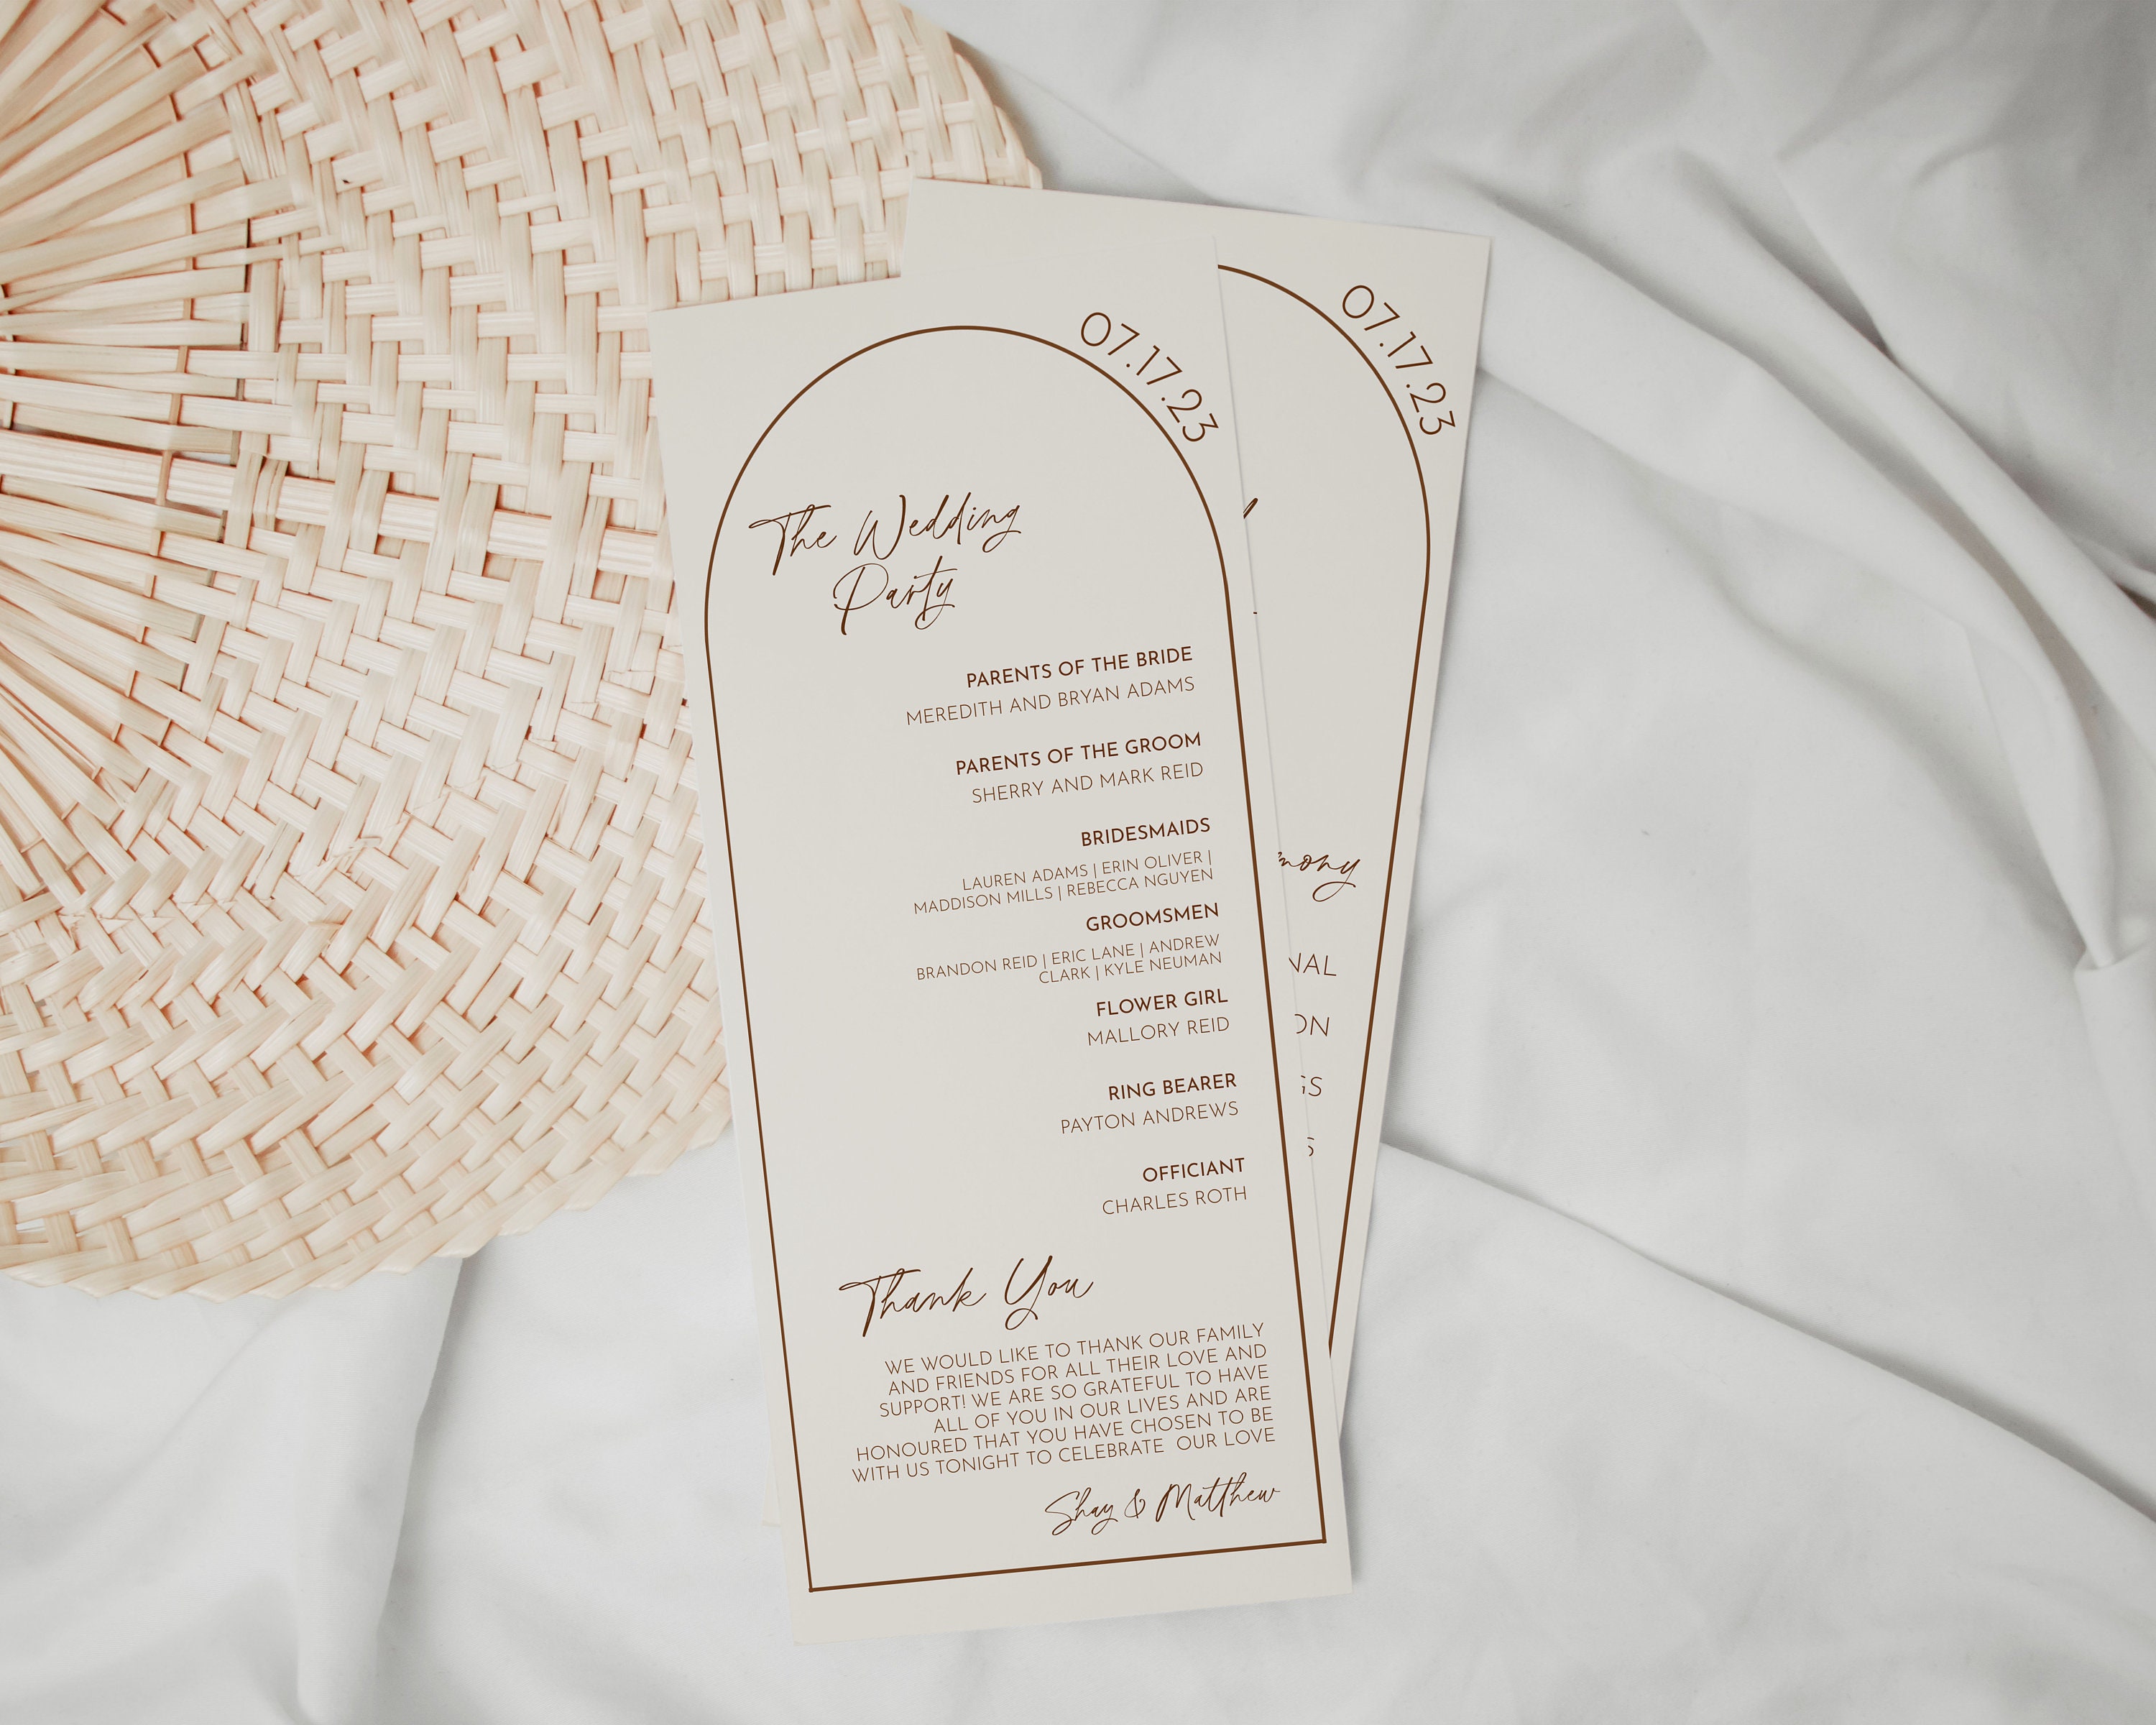 07.17.23
The Wedding
Party
PARENTS OF THE BRIDE
MEREDITH AND BRYAN ADAMS
PARENTS OF THE GROOM
SHERRY AND MARK REID
BRIDESMAIDS
LAUREN ADAMS | ERIN OLIVER |
MADDISON MILLS | REBECCA NGUYEN
GROOMSMEN
BRANDON REID | ERIC LANE | ANDREW
CLARK | KYLE NEUMAN
FLOWER GIRL
MALLORY REID
RING BEARER
PAYTON ANDREWS
OFFICIANT
CHARLES ROTH
Thank You
WE WOULD LIKE TO THANK OUR FAMILY
AND FRIENDS FOR ALL THEIR LOVE AND
SUPPORT! WE ARE SO GRATEFUL TO HAVE
ALL OF YOU IN OUR LIVES AND ARE
HONOURED THAT YOU HAVE CHOSEN TO BE
WITH US TONIGHT TO CELEBRATE OUR LOVE
Shay & Matthew
07.17.23